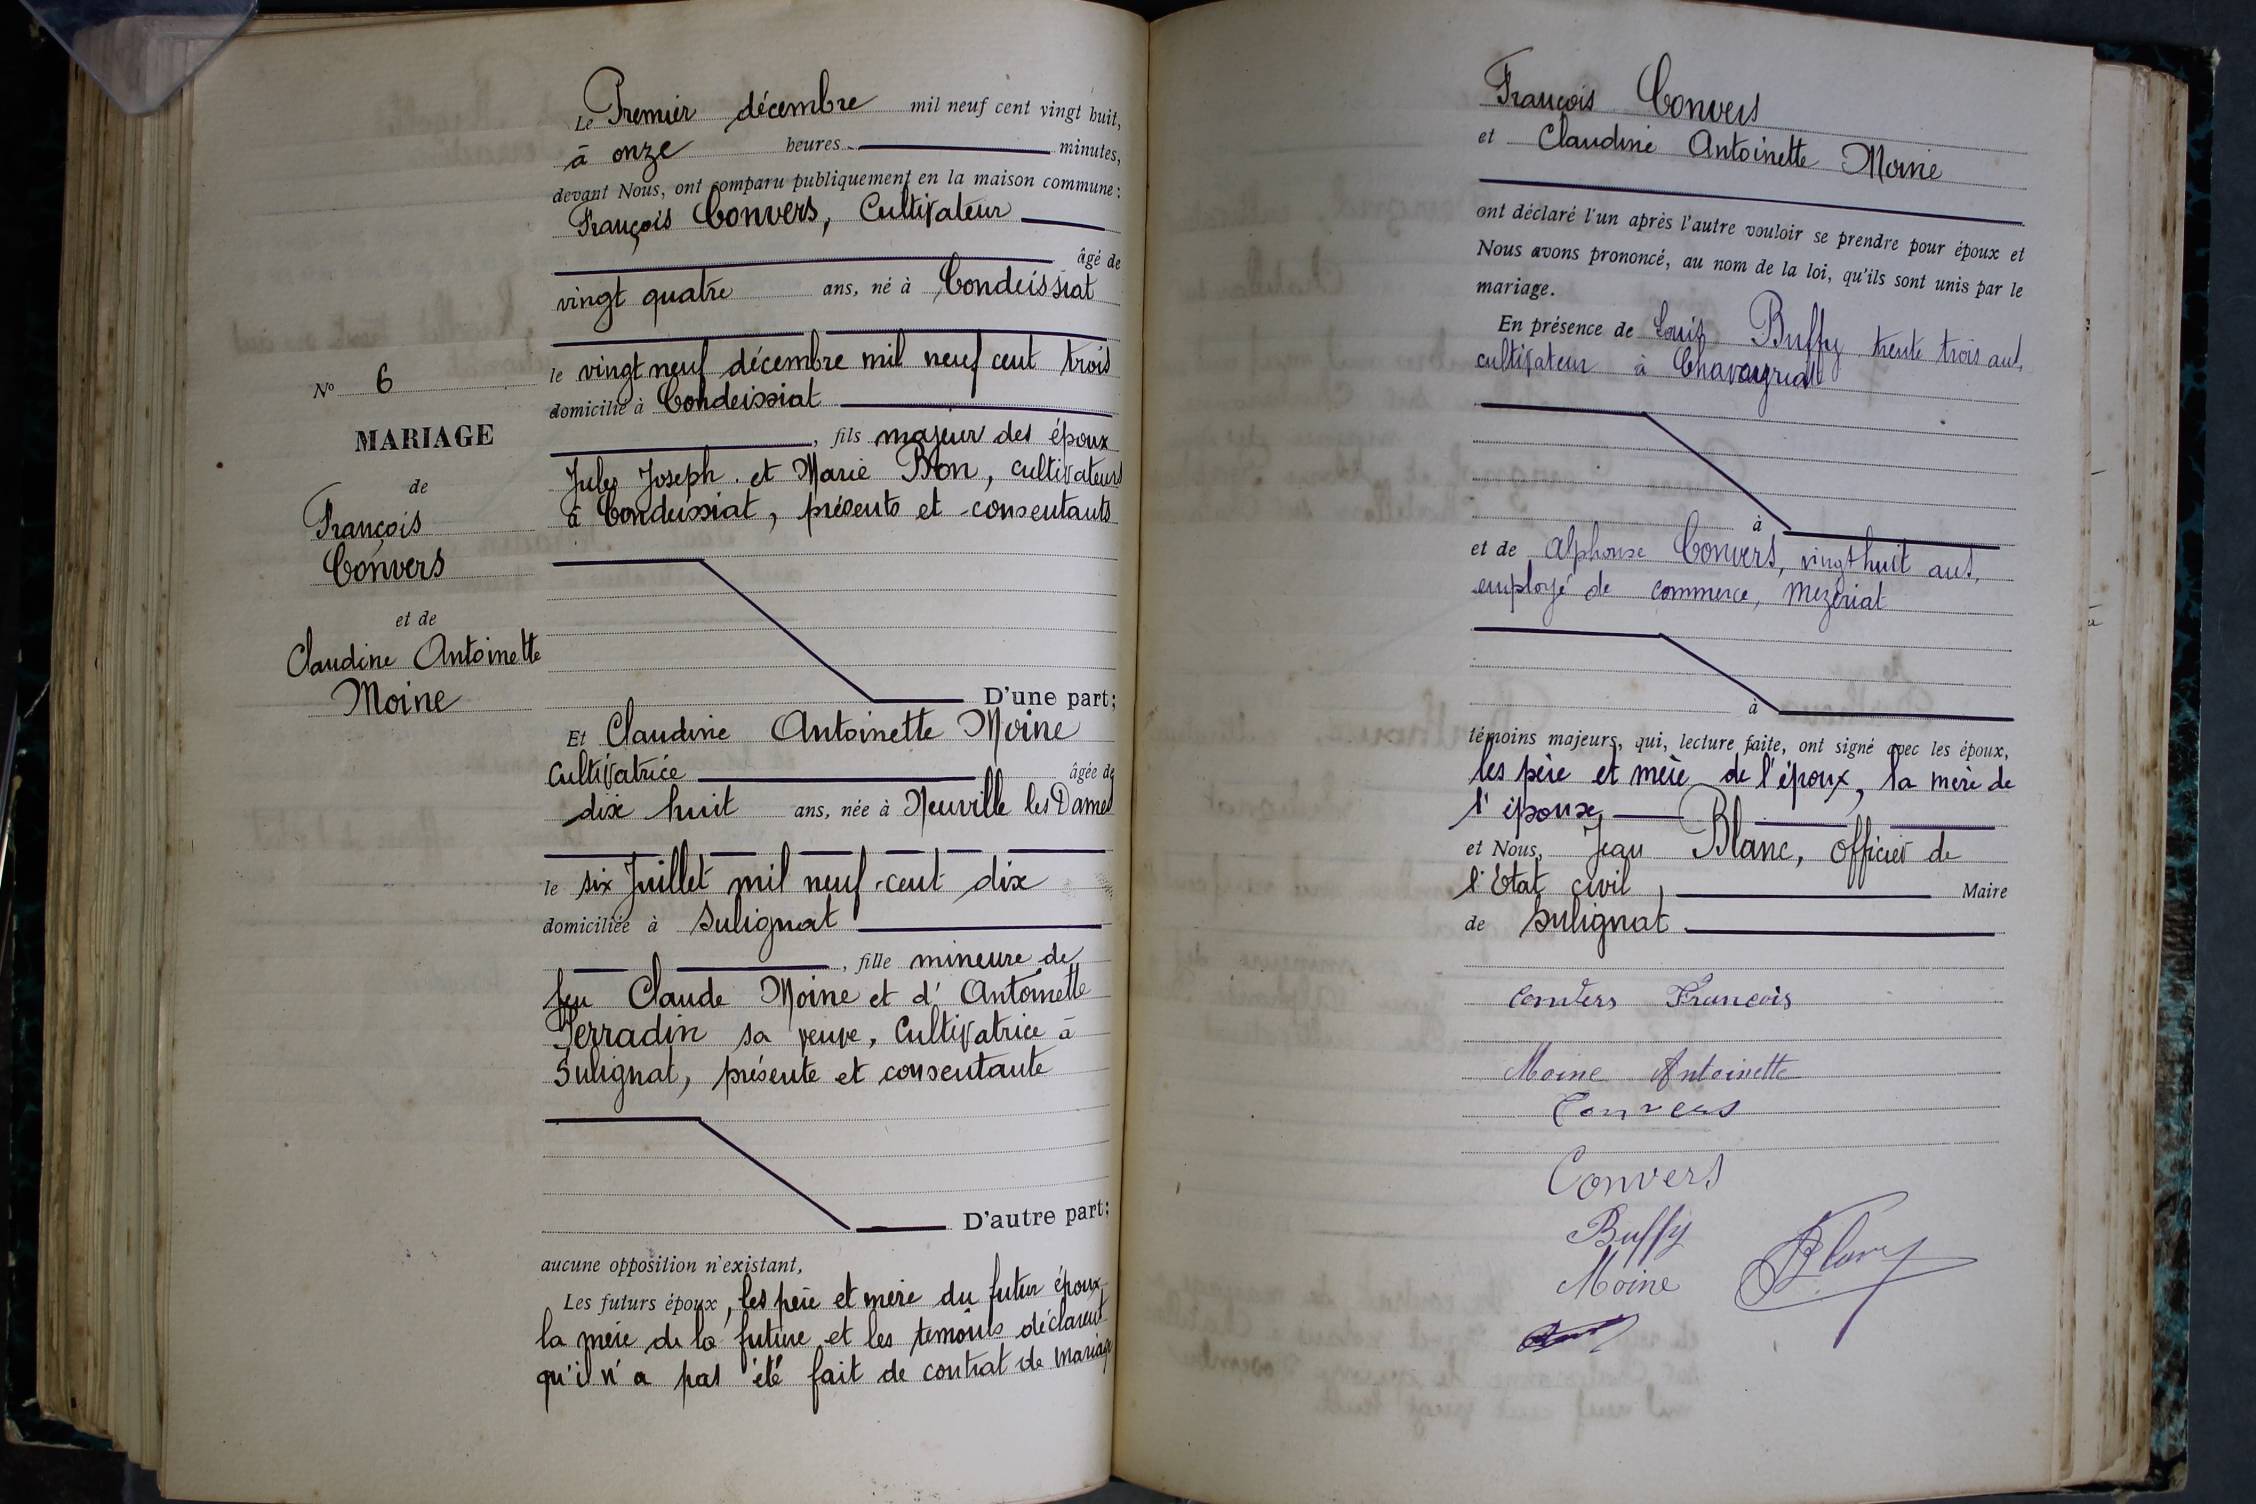 Le Premier décembre mil neuf cent vingt huit,
à onze heures minutes,
devant Nous, ont comparu publiquement en la maison commune:
François Convers, Cultivateur
âgé de
vingt quatre ans, né à Condeissiat
le vingt neuf décembre mil neuf cent trois
domicilié à Condeissiat
, fils majeur des époux
Jules Joseph et Marie Bon, cultivateurs
à Condeissiat, présents et consentants
D'une part;
N° 6
MARIAGE
de
François
Convers
et de
Claudine Antoinette
Moine
Et Claudine Antoinette Moine
Cultivatrice âgée de
dix huit ans, née à Neuville les Dames
le six Juillet mil neuf cent dix
domiciliée à Sulignat
, fille mineure de
feu Claude Moine et d'Antoinette
Perradin sa veuve, Cultivatrice à
Sulignat, présente et consentante
D'autre part;
aucune opposition n'existant,
Les futurs époux, les père et mère du futur époux,
la mère de la future et les témoins déclarent
qu'il n'a pas été fait de contrat de mariage
François Convers
et Claudine Antoinette Moine
ont déclaré l'un après l'autre vouloir se prendre pour époux et
Nous avons prononcé, au nom de la loi, qu'ils sont unis par le
mariage.
En présence de Louis Buffy trente trois ans,
cultivateur à Chavagnat
à
et de Alphonse Convers, vingt huit ans,
employé de commerce, Mézériat
à
témoins majeurs, qui, lecture faite, ont signé avec les époux,
les père et mère de l'époux, la mère de
l'épouse
et Nous, Jean Blanc, officier de
l'Etat civil, Maire
de Sulignat
Convers Francois
Moine Antoinette
Convers
Convers
Buffy
Moine
Blanc